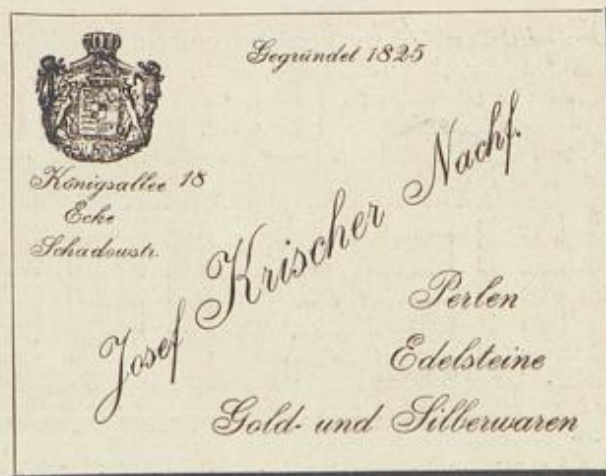 Gegründet 1825
Königsallee 18
Ecke
Schadowstr.
Josef Krischer Nachf.
Perlen
Edelsteine
Gold- und Silberwaren